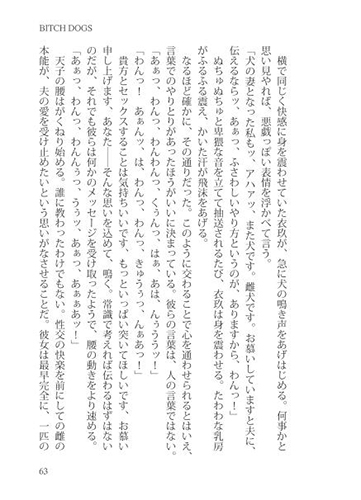 BITCH DOGS
横で同じく快感に身を震わせていた衣玖が、急に犬の鳴き声をあげはじめる。何事かと
思い見やれば、悪戯っぽい表情を浮かべて言う。
「犬の妻となった私もッ、アハァッ、また犬です。雌犬です。お慕いしていますと夫に、
伝えるならッ、あぁっ、ふさわしいやり方というのが、ありますから、わんっ！」
ぬちゅぬちゅと卑猥な音を立てて抽送されるたび、衣玖は身を震わせる。たわわな乳房
がふるふる震え、かいた汗が飛沫をあげる。
なるほど確かに、その通りだった。このように交わることで心を通わせられるとはいえ、
言葉でのやりとりがあったほうがいいに決まっている。彼らの言葉は、人の言葉ではない。
「あぁっ、わんっ、わんわんっ、くぅんっ、はぁ、あは、んぅううッ！」
「わんっ！　あぁんッ、は、わんっ、わんっ、きゅうぅっ、んぁあっ！」
貴方とセックスすることは気持ちいいです、もっといっぱい突いてほしいです、お慕い
申し上げます、あなた――そんな思いを込めて、鳴く。常識で考えれば伝わるはずはない
のだが、それでも彼らは何かのメッセージを受け取ったようで、腰の動きをより速める。
「あぁっ、わんっ、わんんぅっ、うぅッ、あぁっ、あぁぁあッ！」
天子の腰はがくねり始める。誰に教わったわけでもない。性交の快楽を前にしての雌の
本能が、夫の愛を受け止めたいという思いがなさせることだ。彼女は最早完全に、一匹の
63